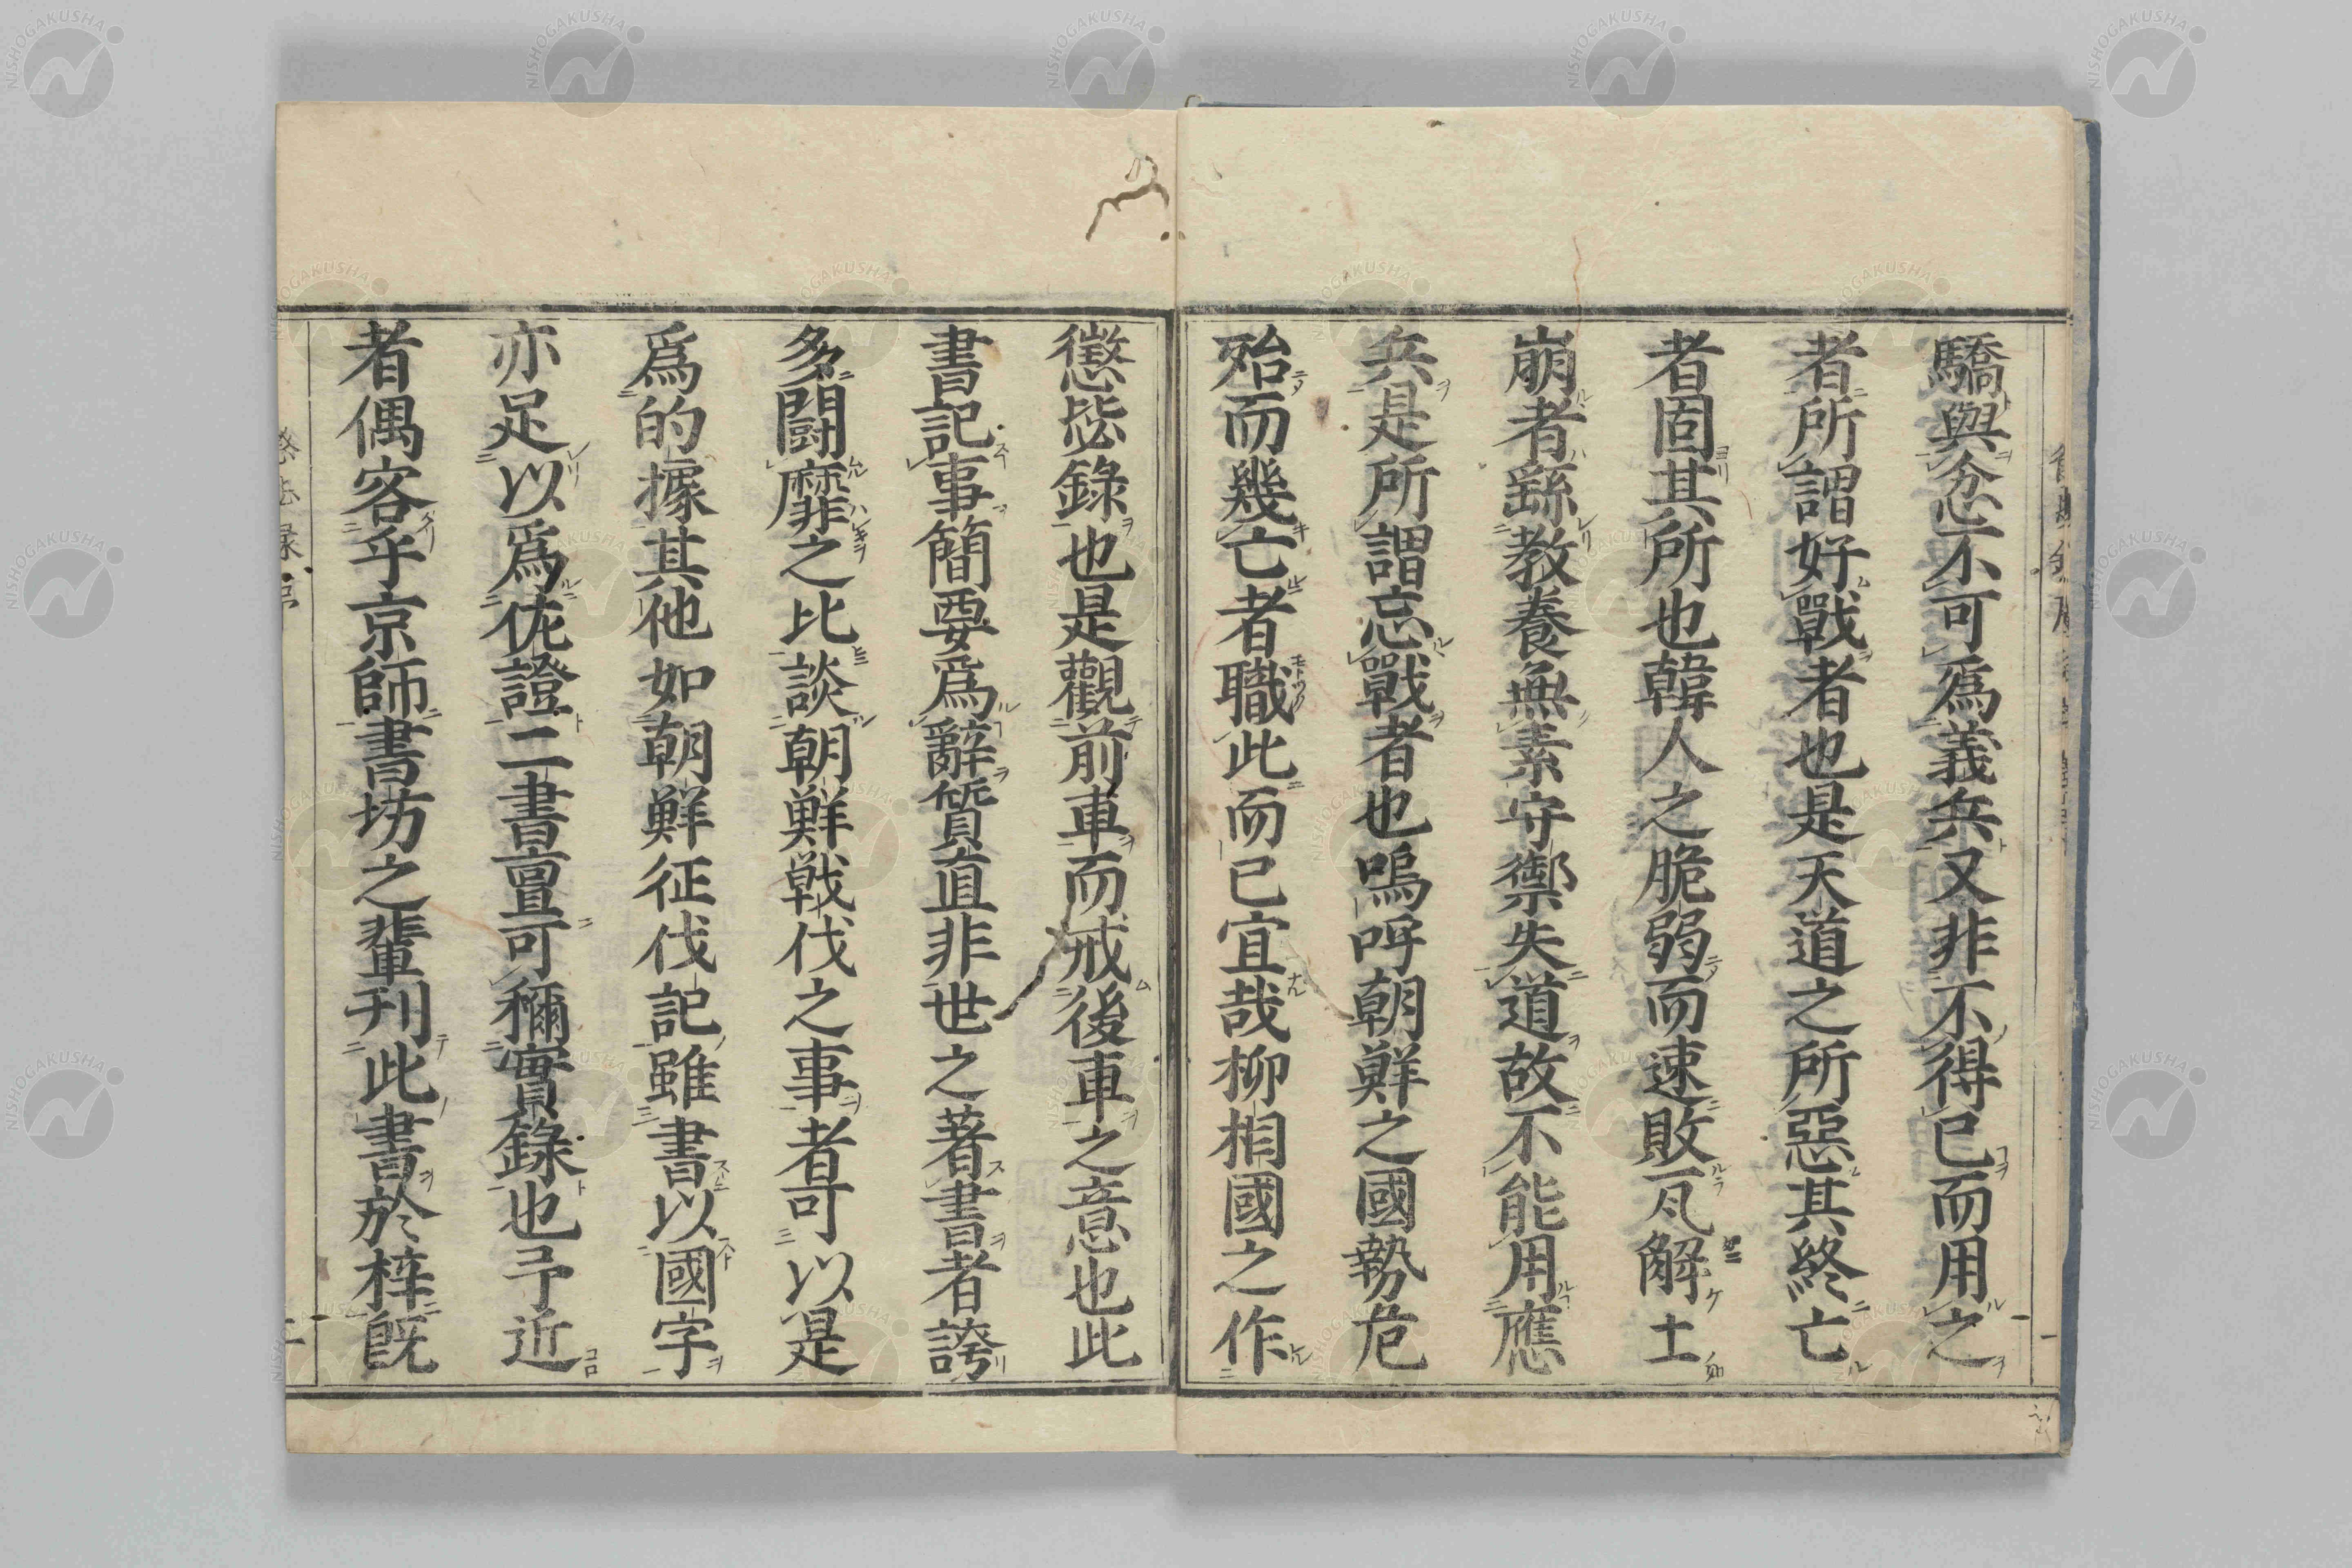 驕與忿不可爲義兵又非不得已而用之
者所謂好戰者也是天道之所惡其終亡
者固其所也韓人之脆弱而速敗瓦解土
崩者繇教養無素守禦失道故不能用應
兵是所謂忘戰者也嗚呼朝鮮之國勢危
殆而幾亡者職此而已宜哉柳相國之作
懲毖錄也是觀前車而戒後車之意也此
書記事簡要爲辭質直非世之著書者誇
多鬪靡之比談朝鮮戰伐之事者可以是
爲的據其他如朝鮮征伐記雖書以國字
亦足以爲佐證二書亶可稱實錄也予近
者偶客乎京師書坊之輩刊此書於梓既
NISHOGAKUSHA